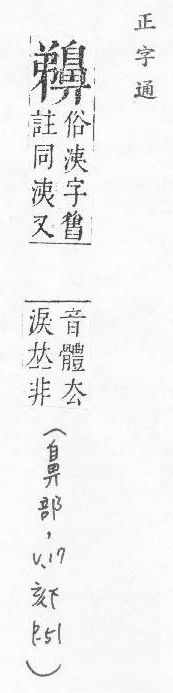 正字通
俗洟字舊
註同洟又
音體厺
淚𠀤非
(鼻部, V.17 亥下 P.51)